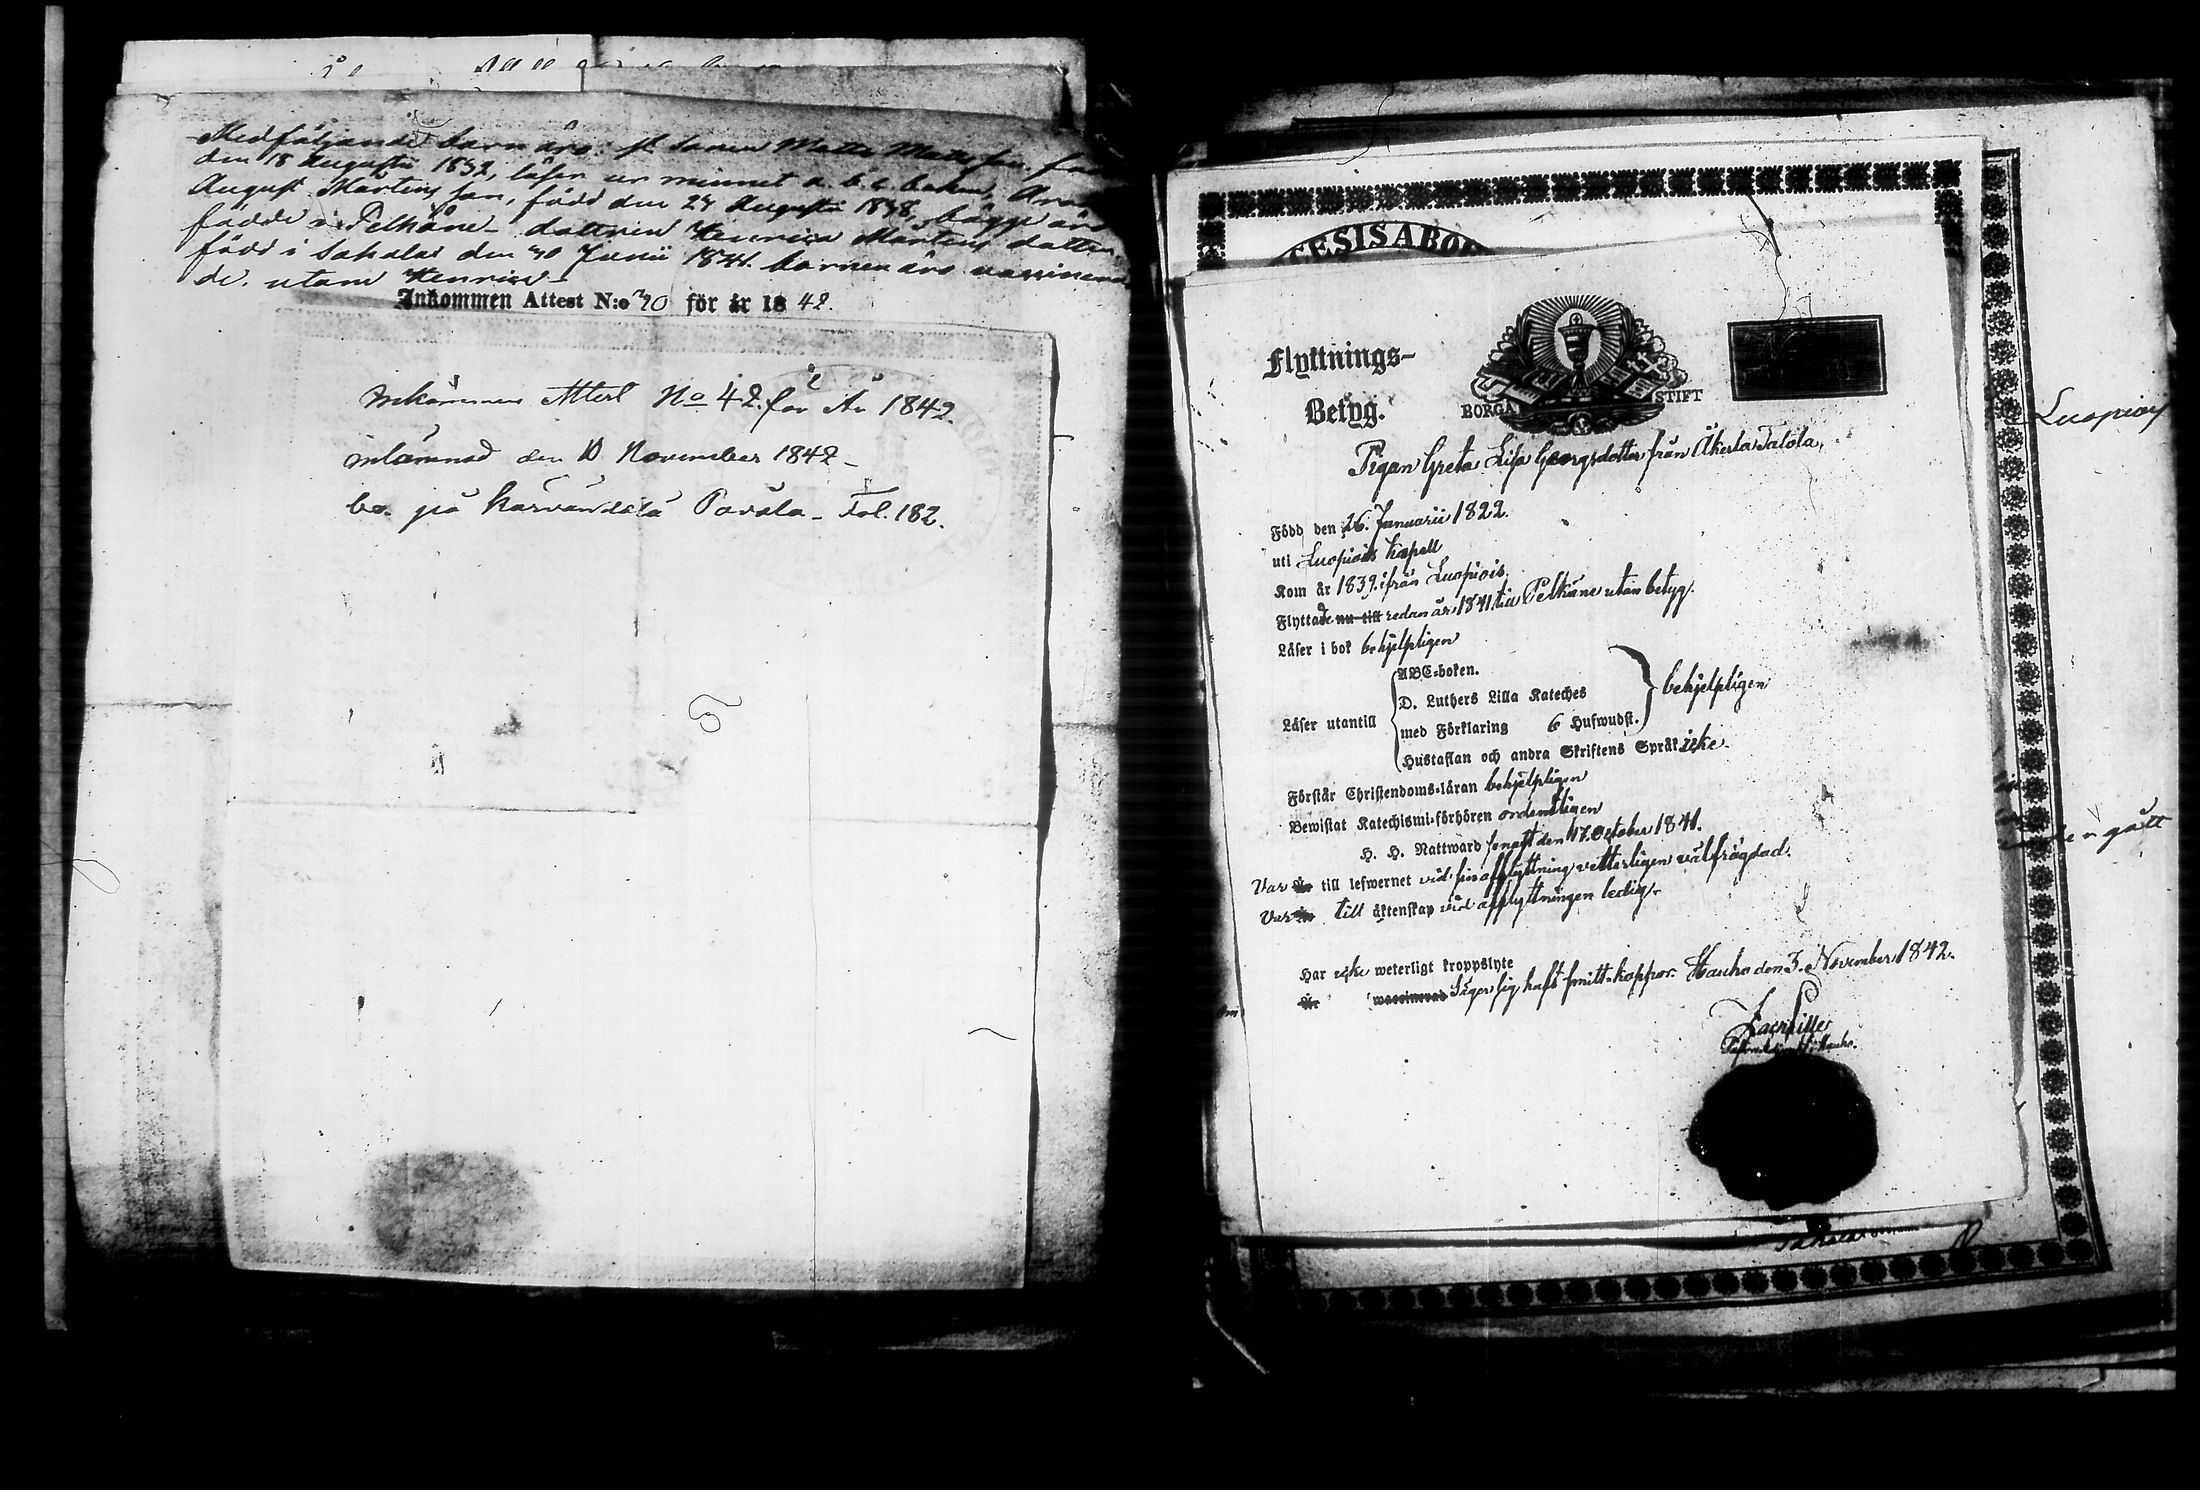 Medföljande barn äro: st sonen Matts Matts son, född
den 18 Augusti 1832, läser ur minnet a. b. c. boken,
August Mårtens son, född den 24 Augusti 1838, bägge äro
födde i Pelkäne - dottren Henrica Mårtens dotter,
född i Sahalax den 30 Junii 1841. barnen äro vaccinera
de. utom Henrica -
Inkommen Attest N:o 40 för år 1842.
Inkommen Attest No 42. för År 1842.
inlämnad den 10 November 1842 -
bo. på Kärväntälä Pavala - Fol. 182.
CESISABO
Flyttnings-
Betyg.
BORGÅ STIFT
Pigan Greta Lisa Georgsdotter från Åkerla Talola,
Född den 26. Januarii 1822.
uti Luopiois Kapell
Kom år 1839. ifrån Luopiois.
Flyttade nu till redan år 1841 till Pelkäne utan betyg.
Läser i bok behjelpligen
Läser utantill
ABC-boken.
D. Luthers Lilla Kateches
med Förklaring 6 Hufwudst.
behjelpligen
Hustaflan och andra Skriftens Språk icke.
Förstår Christendoms-läran behjelpligen
Bewistat Katechismi-förhören ordentligen
H. H. Nattward senast den 17. October 1841.
Var Är till lefwernet vid sin afflyttning vetterligen välfrägdad.
Var Är till äktenskap vid afflyttningen ledig.
Har icke weterligt kroppslyte
Är waccinerad Säger sig haft smitt-koppor. Hauho den 3. November 1842.
Luopiois